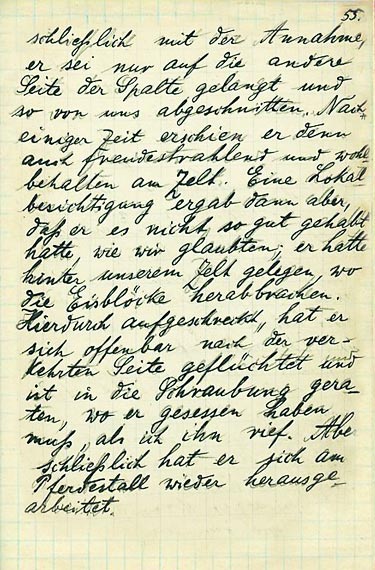 55.
schließlich mit der Annahme,
er sei nur auf die andere
Seite der Spalte gelangt und
so von uns abgeschnitten. Nach
einiger Zeit erschien er denn
auch freudestrahlend und wohl
behalten am Zelt. Eine Lokal
besichtigung ergab dann aber,
daß er es nicht so gut gehabt
hatte, wie wir glaubten; er hatte
hinter unserem Zelt gelegen, wo
die Eisblöcke herabbrachen.
Hierdurch aufgeschreckt, hat er
sich offenbar nach der ver-
kehrten Seite geflüchtet und
ist in die Schraubung gera-
ten, wo er gesessen haben
muß, als ich ihn rief. Abe
schließlich hat er sich am
Pferdestall wieder herausge-
arbeitet.